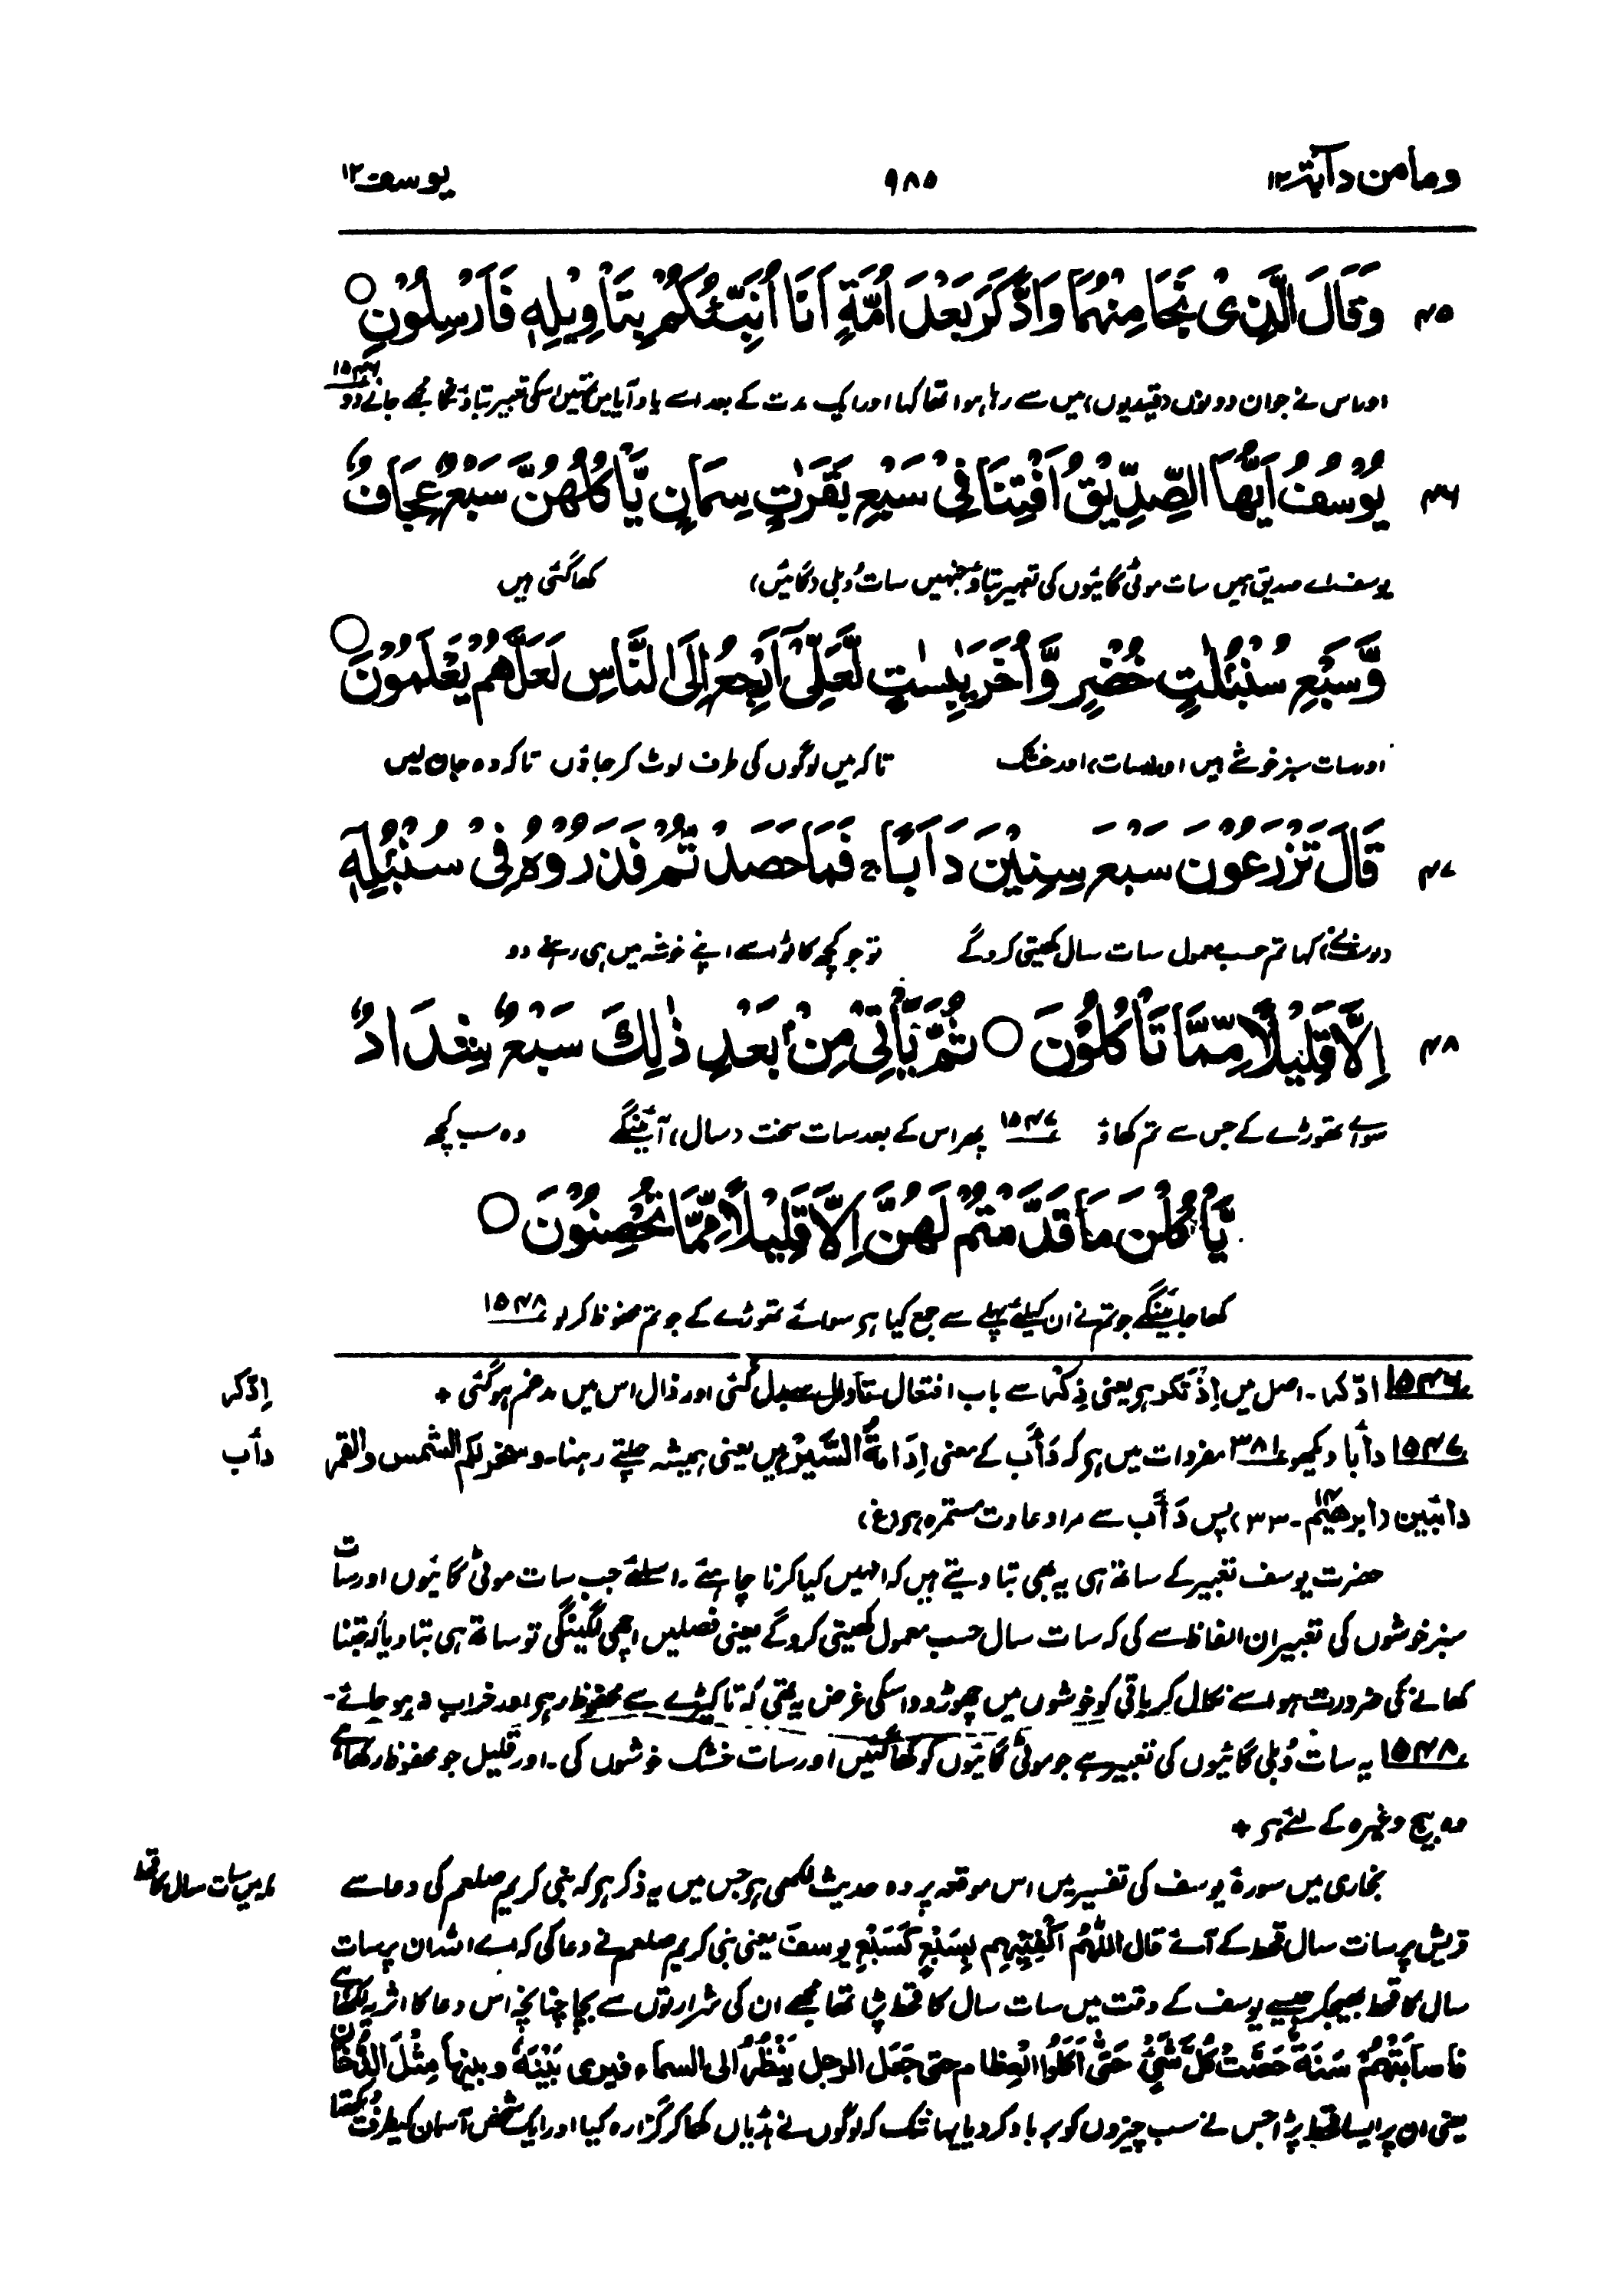 ومامن دآبۃ ۱۲ ۹۸۵ یوسف ۱۲
۴۵ وَقَالَ الَّذِیْ نَجَا مِنْہُمَا وَادَّکَرَ بَعْدَ اُمَّۃٍ اَنَا اُنَبِّئُکُمْ بِتَاْوِیْلِہٖ فَاَرْسِلُوْنِ ○
اور اس نے جو ان دونوں (قیدیوں) میں سے رہا ہوا تھا کہا اور ایک مدت کے بعد اسے یاد آیا میں تمہیں اسکی تعبیر بتاؤنگا مجھے جانے دو ۱۵۴۶
۴۶ یُوْسُفُ اَیُّھَا الصِّدِّیْقُ اَفْتِنَا فِیْ سَبْعِ بَقَرٰتٍ سِمَانٍ یَّاْکُلُھُنَّ سَبْعٌ عِجَافٌ
یوسف اے صدیق ہمیں سات موٹی گائیوں کی تعبیر بتاؤ جنہیں سات دُبلی (گائیں) کھا گئی ہیں
وَّسَبْعِ سُنْبُلٰتٍ خُضْرٍ وَّاُخَرَ یٰبِسٰتٍ لَّعَلِّیْٓ اَرْجِعُ اِلَی النَّاسِ لَعَلَّھُمْ یَعْلَمُوْنَ ○
اور سات سبز خوشے ہیں اور (سات) اور خشک تاکہ میں لوگوں کی طرف لوٹ کر جاؤں تاکہ وہ جان لیں
۴۷ قَالَ تَزْرَعُوْنَ سَبْعَ سِنِیْنَ دَاَبًا ۚ فَمَا حَصَدْتُّمْ فَذَرُوْہُ فِیْ سُنْبُلِہٖٓ
(یوسف نے) کہا تم حسب معمول سات سال کھیتی کرو گے تو جو کچھ کاٹو اسے اپنے خوشہ میں ہی رہنے دو
۴۸ اِلَّا قَلِیْلًا مِّمَّا تَاْکُلُوْنَ ○ ثُمَّ یَاْتِیْ مِنْۢ بَعْدِ ذٰلِکَ سَبْعٌ شِدَادٌ
سوائے تھوڑے کے جس سے تم کھاؤ ۱۵۴۷ پھر اس کے بعد سات سخت (سال) آئینگے وہ سب کچھ
یَّاْکُلْنَ مَا قَدَّمْتُمْ لَھُنَّ اِلَّا قَلِیْلًا مِّمَّا تُحْصِنُوْنَ ○
کھا جائینگے جو تم نے ان کیلئے پہلے سے جمع کیا ہر سوائے تھوڑے کے جو تم محفوظ کر لو ۱۵۴۸
۱۵۴۶ ادّکر۔ اصل میں اِذْتَکر ہر یعنی ذِکر سے باب افتعال تا دال سے بدل گئی اور ذال اس میں مدغم ہو گئی + اِدّکر
۱۵۴۷ دأبا دیکھو ۳۸۱ مفردات میں ہر کہ دَأْب کے معنی اِدَامَۃُ السَّیْرِ ہیں یعنی ہمیشہ چلتے رہنا۔ وسخر لکم الشمس والقمر دأب
دائبین (ابرھیم ۱۴۔۳۳) پس دَأْب سے مراد عادت مستمرہ ہر (غ)
حضرت یوسف تعبیر کے ساتھ ہی یہ بھی بتا دیتے ہیں کہ انہیں کیا کرنا چاہئے۔ اسلئے جب سات موٹی گائیوں اور سات
سبز خوشوں کی تعبیر ان الفاظ سے کی کہ سات سال حسب معمول کھیتی کرو گے یعنی فصلیں اچھی لگینگی تو ساتھ ہی بتا دیا کہ جتنا
کھانے کی ضرورت ہو اسے نکال کر باقی کو خوشوں میں چھوڑ دو اسکی غرض یہ تھی کہ تا کیڑے سے محفوظ رہر اور خراب نہ ہو جائے۔
۱۵۴۸ یہ سات دُبلی گائیوں کی تعبیر ہے جو موٹی گائیوں کو کھا گئیں اور سات خشک خوشوں کی۔ اور قلیل جو محفوظ رکھا ہے
وہ بیج وغیرہ کے لئے ہر +
بخاری میں سورۂ یوسف کی تفسیر میں اس موقعہ پر وہ حدیث لکھی ہر جس میں یہ ذکر ہر کہ نبی کریم صلعم کی دعا سے سات سال کا قحط
قریش پر سات سال قحط کے آئے قال اللّٰھم اکْفِنِیْہِم بِسَبْعٍ کَسَبْعِ یوسفَ یعنی نبی کریم صلعم نے دعا کی کہ اے اللہ ان پر سات
سال کا قحط بھیجکر جیسے یوسف کے وقت میں سات سال کا قحط پڑا تھا مجھے ان کی شرارتوں سے بچا چنانچہ اس دعا کا اثر یہ لکھا ہے
فاصابَتْھُمْ سَنَۃٌ حَصَّتْ کُلَّ شَیْءٍ حَتّٰی اَکَلُوا الْعِظَامَ حتی جَعَلَ الرجل یَنْظُرُ الی السماء فیری بَیْنَہٗ وبینہا مِثْلَ الدُّخَان
یعنی ان پر ایسا قحط پڑا جس نے سب چیزوں کو برباد کر دیا یہانتک کہ لوگوں نے ہڈیاں کھا کر گزارہ کیا اور ایک شخص آسمان کیطرف دیکھتا